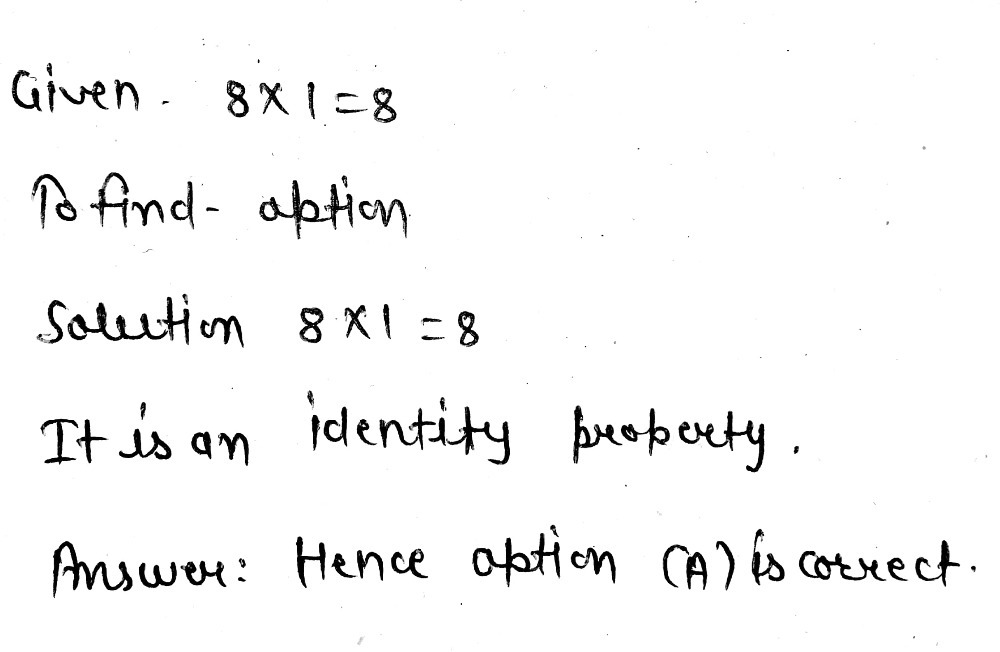 Given - 8 × 1 = 8
To find - option
Solution 8 × 1 = 8
It is an identity property.
Answer: Hence option (A) is correct.